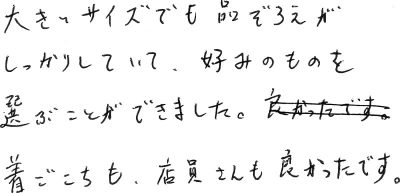 大きいサイズでも品ぞろえが
しっかりしていて、好みのものを
選ぶことができました。良かったです。
着ごこちも、店員さんも良かったです。